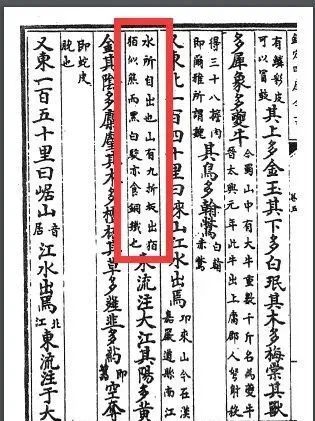 有鱗彩皮
可以冒鼓
其上多金玉其下多白珉其木多梅棠其獸
多犀象多夔牛
今蜀山中有大牛重數千斤名為夔牛
晉太興元年此牛出上庸郡人弩射殺
得三十八擔肉
即爾雅所謂魏
其鳥多翰鷩
白翰
赤鷩
又東北一百四十里曰崍山江水出焉
邛來山今在漢
嘉嚴道縣南江
水所自出也山有九折坂出狛
狛似熊而黑白駮亦食銅鐵也
東流注大江其陽多黃
金其陰多麋麈其木多檀柘其草多䪥韭多葯
即
空奪
即蛇皮
脫也
又東一百五十里曰崌山
音居
江水出焉
北江
東流注于大
卷五